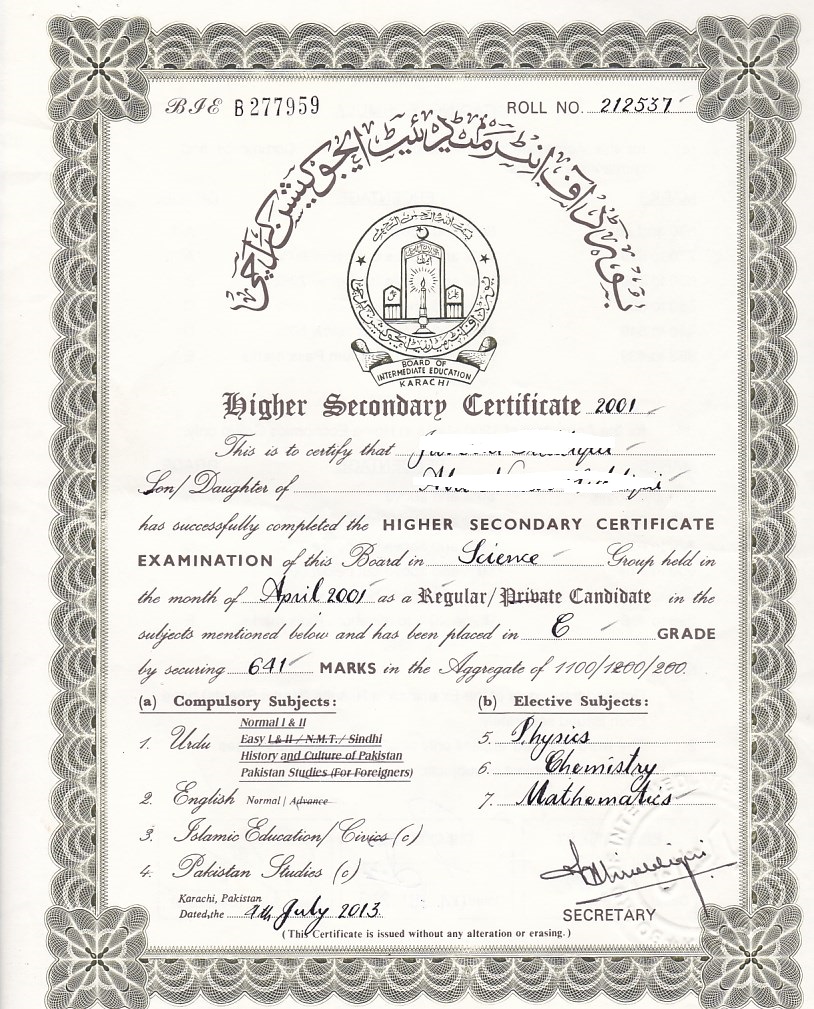 BIE B 277959
ROLL NO. 212537
بورڈ آف انٹرمیڈیٹ ایجوکیشن کراچی
BOARD OF
INTERMEDIATE EDUCATION
KARACHI
Higher Secondary Certificate 2001
This is to certify that
Son/Daughter of
has successfully completed the HIGHER SECONDARY CERTIFICATE
EXAMINATION of this Board in Science Group held in
the month of April 2001 as a Regular/Private Candidate in the
subjects mentioned below and has been placed in C GRADE
by securing 641 MARKS in the Aggregate of 1100/1200/200.
(a) Compulsory Subjects:
1. Urdu
Normal I & II
Easy I & II / N.M.T. / Sindhi
History and Culture of Pakistan
Pakistan Studies (For Foreigners)
2. English Normal / Advance
3. Islamic Education/Civics (c)
4. Pakistan Studies (c)
(b) Elective Subjects:
5. Physics
6. Chemistry
7. Mathematics
Karachi, Pakistan
Dated, the 9th July 2013
SECRETARY
(This Certificate is issued without any alteration or erasing.)